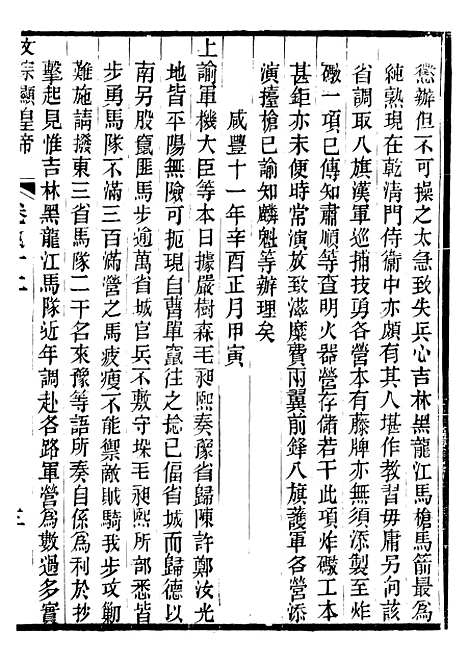 懲辦但不可操之太急致失兵心吉林黑龍江馬槍馬箭最為
純熟現在乾淸門侍衞中亦頗有其人堪作敎習毋庸另向該
省調取八旗漢軍巡捕技勇各營本有藤牌亦無須添製至炸
礮一項已傳知肅順等查明火器營存儲若干此項炸礮工本
甚鉅亦未便時常演放致滋糜費兩翼前鋒八旗護軍各營添
演擡槍已諭知麟魁等辦理矣
咸豐十一年辛酉正月甲寅
上諭軍機大臣等本日據嚴樹森毛昶熙奏豫省歸陳許鄭汝光
地皆平陽無險可扼現自曹單竄往之捻已偪省城而歸德以
南另股竄匪馬步逾萬省城官兵不敷守垜毛昶熙所部悉皆
步勇馬隊不滿三百滿營之馬疲瘦不能禦敵賊騎我步攻勦
難施請撥東三省馬隊二千名來豫等語所奏自係為利於抄
擊起見惟吉林黑龍江馬隊近年調赴各路軍營為數過多實
文宗顯皇帝